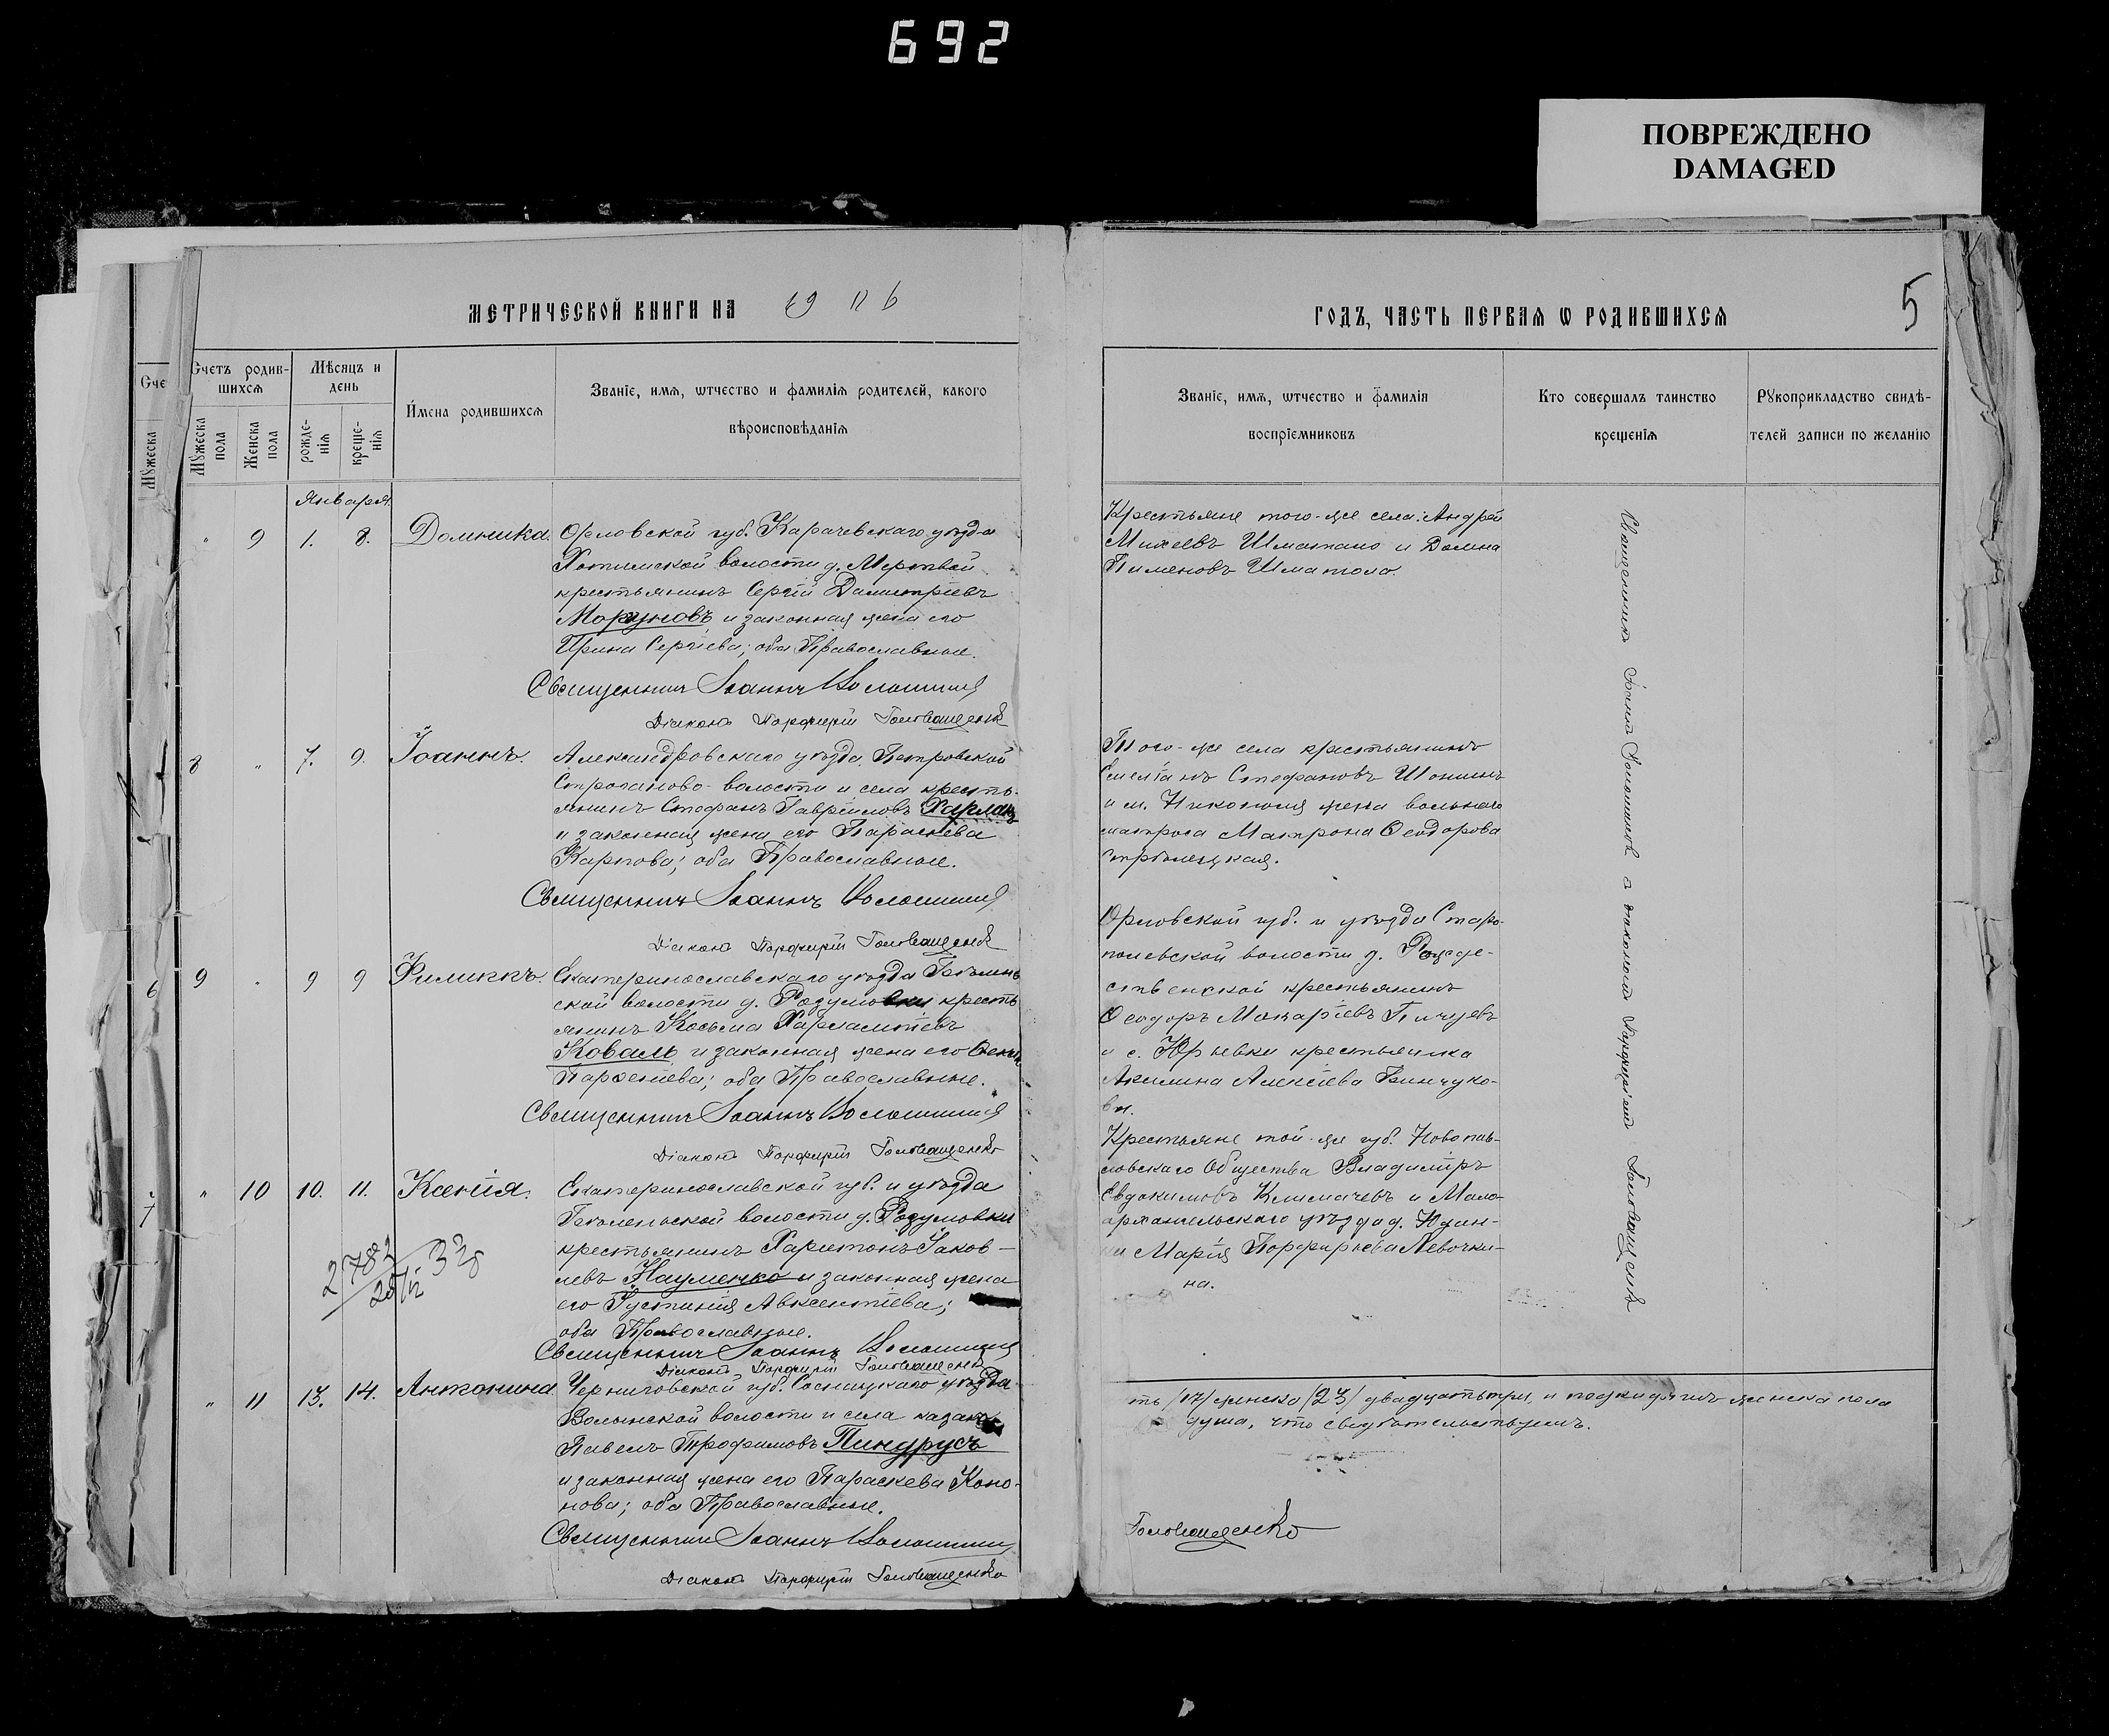 692
ПОВРЕЖДЕНО
DAMAGED
МЕТРИЧЕСКОЙ КНИГИ НА 1906
ГОДЪ, ЧАСТЬ ПЕРВАЯ Ѡ РОДИВШИХСЯ
5
Счетъ родив-
шихся
Мѣсяцъ и
день
Имена родившихся
Званіе, имя, ѿчество и фамилія родителей, какого
вѣроисповѣданія
Мꙋжеска
пола
Женска
пола
рожде-
нія
креще-
нія
Сче
Мꙋжеска
Января
" 9 1. 8. Домника.
Орловской губ. Карачевскаго уѣзда
Хотимской волости д. Мертвой
крестьянинъ Сергій Димитріевъ
Моргуновъ и законная жена его
Ирина Сергіева; оба Православные.
Священникъ Іоаннъ Волошинъ
Діаконъ Порфирій Головащенко
8 " 7. 9. Іоаннъ.
Александровскаго уѣзда Петровской
Строганово-волости и села кресть-
янинъ Стефанъ Гавріиловъ Харланъ
и законная жена его Параскева
Карпова; оба Православные.
Священникъ Іоаннъ Волошинъ
Діаконъ Порфирій Головащенко
6
9 " 9 9 Филиппъ.
Екатеринославскаго уѣзда
ской волости д. Розумовки кресть
янинъ Косьма Харлампіевъ
Коваль и законная жена его
Парѳеніева; оба Православные.
Священникъ Іоаннъ Волошинъ
Діаконъ Порфирій Головащенко
7
" 10 10. 11. Ксенія.
Екатеринославской губ. и уѣзда
волости д. Розумовки
крестьянинъ Харитонъ Іаков-
левъ Науменко и законная жена
его Іустинія Авксентіева;
оба Православные.
Священникъ Іоаннъ Волошинъ
Діаконъ Порфирій Головащенко
" 11 13. 14. Антонина
Черниговской губ. Сосницкаго уѣзда
Волынской волости и села казакъ
Павелъ Трофимовъ Пиндрусъ
и законная жена его Параскева Коно-
нова; оба Православные.
Священникъ Іоаннъ Волошинъ
Діаконъ Порфирій Головащенко
Званіе, имя, ѿчество и фамилія
воспріемниковъ
Кто совершалъ таинство
крещенія
Рꙋкоприкладство свидѣ-
телей записи по желанію
Крестьяне того-же села: Андрей
Михеевъ Шматько и Домна
Пименовъ
Того-же села крестьянинъ
Стефановъ
и м. Никополя жена вольнаго
матроса Матрона Ѳеодорова
Стрѣлецкая.
Орловской губ. и уѣзда Старо-
полевской волости д. Рожде-
ственской крестьянинъ
Ѳеодоръ Макаріевъ
и с. Юрьевки крестьянка
Акилина Алексіева Бинчуко-
ва.
Крестьяне той-же губ. Новопав-
ловскаго Общества Владиміръ
Евдокимовъ Климачевъ и Мало-
архангельскаго уѣзда д.
Марія Порфирьева Левочки-
на.
Священникъ Іоаннъ Волошинъ съ діакономъ Порфиріемъ Головащенко
ть /17/ женска /23/ двадцать три, и подкидышъ женска пола
душа, что свидѣтельствуемъ.
Головащенко